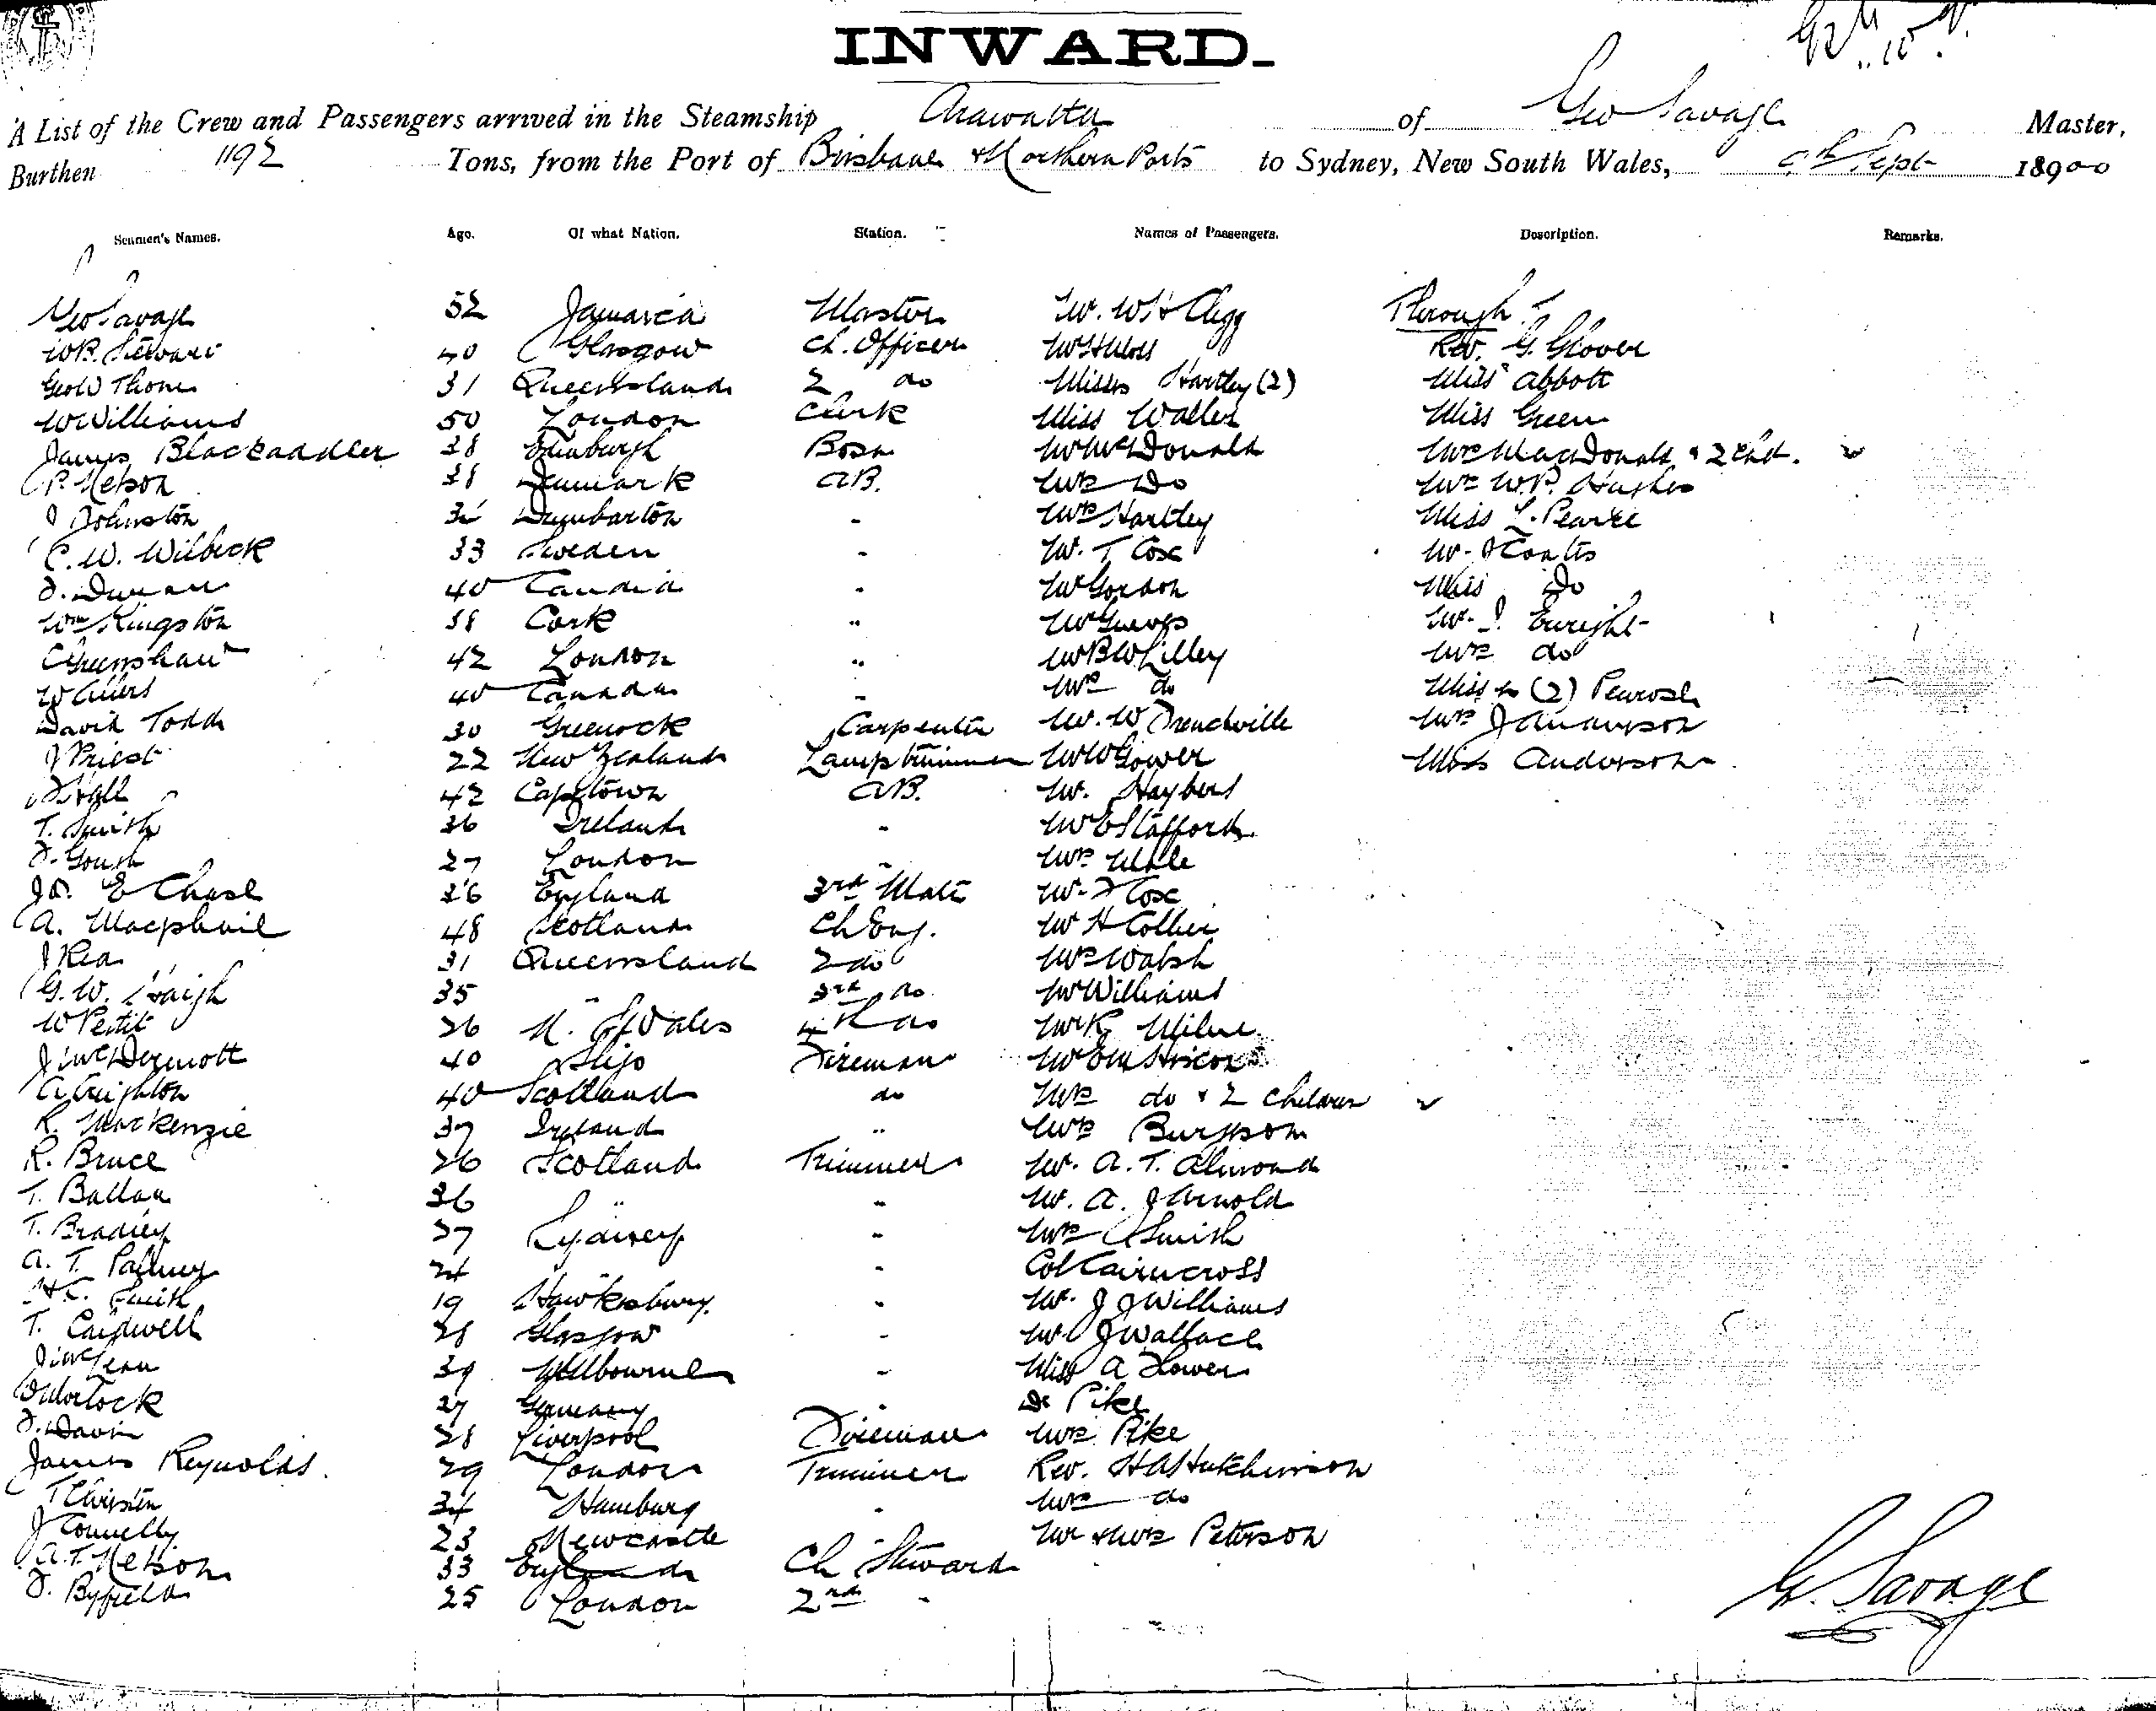 INWARD.
A List of the Crew and Passengers arrived in the Steamship Arawatta of Geo Savage Master,
Burthen 1192 Tons, from the Port of Brisbane & Northern Ports to Sydney, New South Wales, Sept 18900
Seamen's Names. Age. Of what Nation. Station. Names of Passengers. Description. Remarks.
Geo Savage 52 Jamaica Master Mr. W. H Clegg Through
W.B. Stewart 40 Glasgow Ch. Officer Rev. G. Glover
Geo W Thomes 31 Queensland 2 do Misses Hartley (2) Miss Abbott
W Williams 50 London Clerk Miss Waller Miss Green
James Blackadder 38 Edinburgh Bosn Mr McDonald Mrs MacDonald & 2 chd.
P. Nelson 38 Denmark A.B. Mrs Do Mrs W.P. Hughes
J Johnston Dumbarton " Mrs Hartley Miss L. Pearce
C. W. Wilbeck 33 Sweden " Mr. T Cox Mr. J Coates
40 Candia " Mr Gordon Miss Do
Wm Kingston 38 Cork " Mr Greeves Mr. J. Enright
C Greenshaw 42 London " Mr B W Lilley Mrs do
W Allers 40 Canada " Mrs do Misses (2) Penrose
David Todd 30 Greenock Carpenter Mr. W Trendville Mrs J Anderson
J Priest 22 New Zealand Lamp trimmer Mr W Gower Miss Anderson
42 Capetown A.B. Mr.
T. Smith 36 Ireland " Mr E Stafford
J. Gough 27 London " Mrs
Js. E Chase 36 England 3rd Mate Mr. F Cox
A. Macphail 48 Scotland Ch Eng. Mr H Collier
J Rea 31 Queensland 2 do Mrs Walsh
G. W. Haigh 35 " 3rd do Mr Williams
W Pettit 26 N. S Wales 4th do Mr R. Milne
J McDermott 40 Sligo Fireman Mr Em Hiscox
A Creighton 40 Scotland do Mrs do & 2 children
R. Mackenzie 37 Ireland " Mrs Burgson
R. Bruce 26 Scotland Trimmer Mr. A. T. Almond
T. Ballan 36 " " Mr. A. J Arnold
T. Bradley 27 Sydney " Mrs Smith
A. T. Palmer 24 " " Col Cairncross
H. C. Smith 19 Hawkesbury " Mr. J J Williams
T. Cardwell 28 Glasgow " Mr. J Wallace
J McLean 39 Melbourne " Miss A Flower
Mortock 27 Germany " Dr Pike
J. Davin 28 Liverpool Fireman Mrs Pike
James Reynolds. 29 London Trimmer Rev. H A Hutchinson
T Christen 34 Hamburg " Mrs do
J Connelly 23 Newcastle " Mr & Mrs Peterson
A. T. Nelson 33 England Ch Steward
J. Byfield 25 London 2nd "
G. Savage